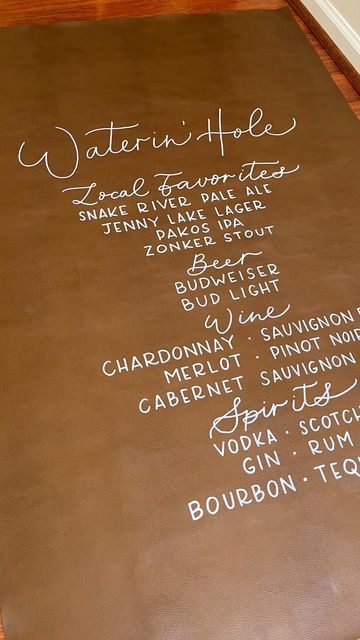 Waterin' Hole
Local Favorites
SNAKE RIVER PALE ALE
JENNY LAKE LAGER
PAKOS IPA
ZONKER STOUT
Beer
BUDWEISER
BUD LIGHT
Wine
CHARDONNAY · SAUVIGNON
MERLOT · PINOT NOIR
CABERNET SAUVIGNON
Spirits
VODKA · SCOTCH
GIN · RUM
BOURBON · TEQU